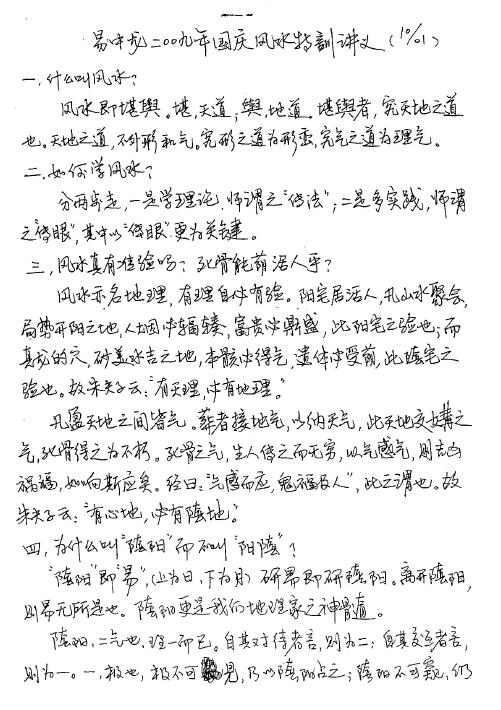 易中龙二00九年国庆风水特訓讲义(10/01)
一,什么叫风水?
风水即堪舆。堪,天道;舆,地道。堪舆者,究天地之道
也。天地之道,不外形和气。究形之道为形峦,究气之道为理气。
二,如何学风水?
分两步走,一是学理论,师谓之"传法";二是多实践,师谓
之"传眼",其中以"传眼"更为关键。
三,风水真有准验吗?死骨能荫活人乎?
风水亦名地理,有理自必有验。阳宅居活人,凡山水聚会,
局势开阳之地,人烟必辐辏,富贵必鼎盛,此阳宅之验也;而
真龙的穴,砂美水吉之地,本骸必得气,遗体必受荫,此陰宅之
验也。故朱夫子云:"有天理,必有地理。"
凡盈天地之间皆气。葬者接地气,以纳天气,此天地交媾之
气,死骨得之为不朽。死骨之气,生人传之而无穷,以气感气,则吉凶
祸福,如向斯应矣。经曰:"气感而应,鬼福及人",此之谓也。故
朱夫子云:"有心地,必有陰地。"
四,为什么叫"陰阳"而不叫"阳陰"?
"陰阳"即"易",(上为日,下为月)研易即研陰阳。离开陰阳,
则易无所是也。陰阳更是我们地理家之神骨道。
陰阳,二气也,理一而已。自其对待者言,则为二;自其交互者言,
则为一。一,极也,极不可見,乃以陰阳占之;陰阳不可窥,仍